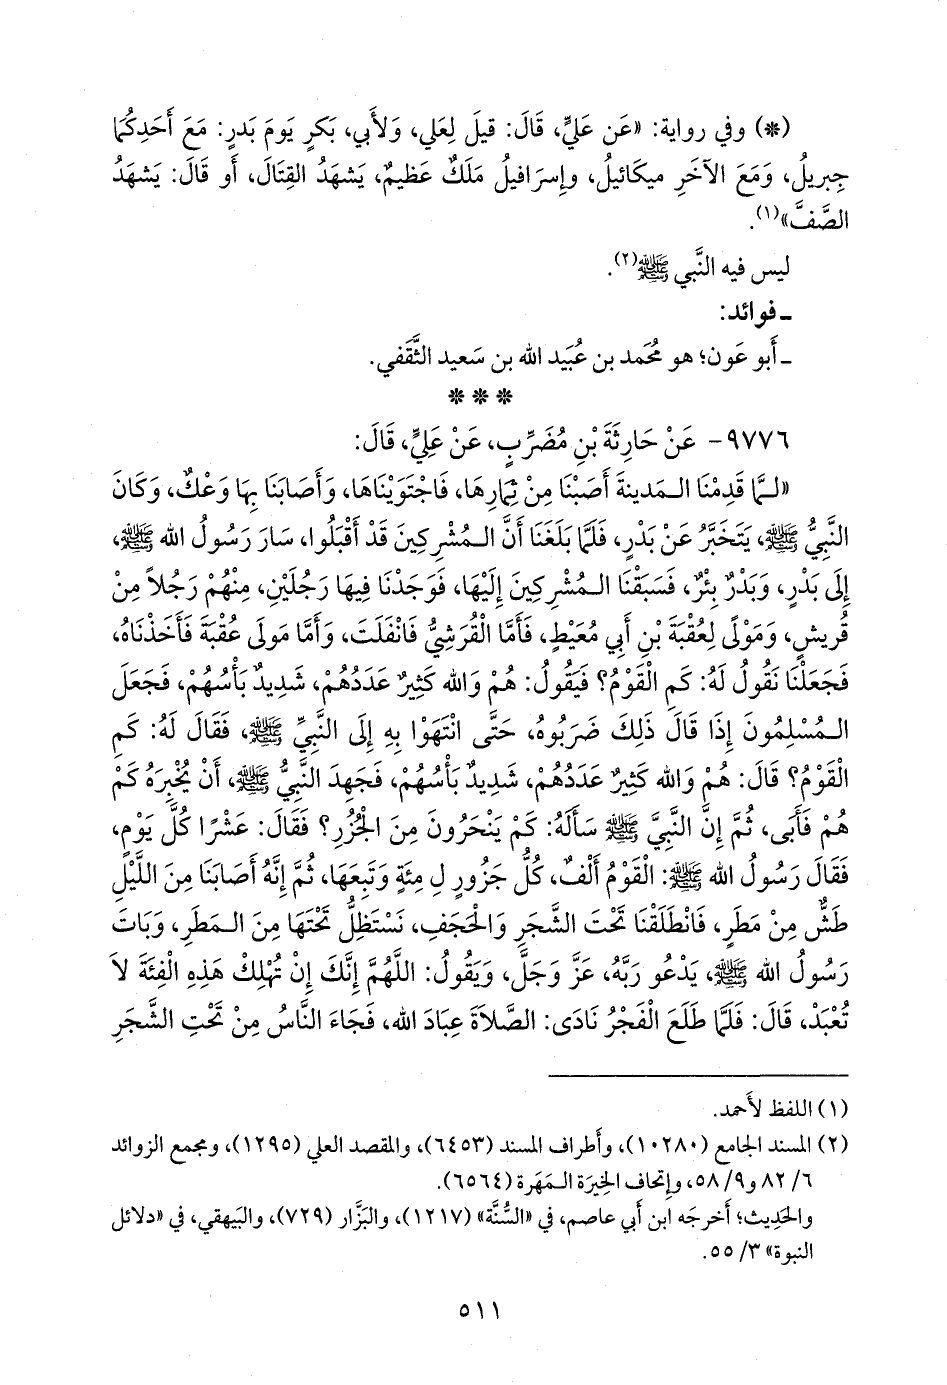 (*) وفي رواية: «عَن عَليٍّ، قَالَ: قيلَ لِعَلي، وَلأَبي، بَكرٍ يَومَ بَدرٍ: مَعَ أَحَدِكُمَا
جِبريلُ، وَمَعَ الآخَرِ ميكَائيلُ، وإِسرَافيلُ مَلَكٌ عَظيمٌ، يَشهَدُ القِتَالَ، أَو قَالَ: يَشهَدُ
الصَّفَّ»(١).
ليس فيه النَّبي ﷺ(٢).
ـ فوائد:
ـ أَبو عَون؛ هو مُحَمد بن عُبَيد الله بن سَعيد الثَّقَفي.
* * *
٩٧٧٦- عَنْ حَارِثَةَ بْنِ مُضَرِّبٍ، عَنْ عَلِيٍّ، قَالَ:
«لـمَّا قَدِمْنَا الـمَدينةَ أَصَبْنَا مِنْ ثِمَارِهَا، فَاجْتَوَيْنَاهَا، وَأَصَابَنَا بِهَا وَعْكٌ، وَكَانَ
النَّبِيُّ ﷺ، يَتَخَبَّرُ عَنْ بَدْرٍ، فَلَمَّا بَلَغَنَا أَنَّ الـمُشْرِكِينَ قَدْ أَقْبَلُوا، سَارَ رَسُولُ الله ﷺ،
إِلَى بَدْرٍ، وَبَدْرٌ بِئْرٌ، فَسَبَقْنَا الـمُشْرِكِينَ إِلَيْهَا، فَوَجَدْنَا فِيهَا رَجُلَيْنِ، مِنْهُمْ رَجُلاً مِنْ
قُرَيشٍ، وَمَوْلًى لِعُقْبَةَ بْنِ أَبِي مُعَيْطٍ، فَأَمَّا الْقُرَشِيُّ فَانْفَلَتَ، وَأَمَّا مَولَى عُقْبَةَ فَأَخَذْنَاهُ،
فَجَعَلْنَا نَقُولُ لَهُ: كَمِ الْقَوْمُ؟ فَيَقُولُ: هُمْ وَالله كَثِيرٌ عَدَدُهُمْ، شَدِيدٌ بَأْسُهُمْ، فَجَعَلَ
الـمُسْلِمُونَ إِذَا قَالَ ذَلِكَ ضَرَبُوهُ، حَتَّى انْتَهَوْا بِهِ إِلَى النَّبِيِّ ﷺ، فَقَالَ لَهُ: كَمِ
الْقَوْمُ؟ قَالَ: هُمْ وَالله كَثِيرٌ عَدَدُهُمْ، شَدِيدٌ بَأْسُهُمْ، فَجَهِدَ النَّبِيُّ ﷺ، أَنْ يُخْبِرَهُ كَمْ
هُمْ فَأَبَى، ثُمَّ إِنَّ النَّبِيَّ ﷺ سَأَلَهُ: كَمْ يَنْحَرُونَ مِنَ الْجُزُرِ؟ فَقَالَ: عَشْرًا كُلَّ يَوْمٍ،
فَقَالَ رَسُولُ الله ﷺ: الْقَوْمُ أَلْفٌ، كُلُّ جَزُورٍ لِ مِئَةٍ وَتَبَعِهَا، ثُمَّ إِنَّهُ أَصَابَنَا مِنَ اللَّيْلِ
طَشٌّ مِنْ مَطَرٍ، فَانْطَلَقْنَا تَحْتَ الشَّجَرِ وَالْحَجَفِ، نَسْتَظِلُّ تَحْتَهَا مِنَ الـمَطَرِ، وَبَاتَ
رَسُولُ الله ﷺ، يَدْعُو رَبَّهُ، عَزَّ وَجَلَّ، وَيَقُولُ: اللَّهُمَّ إِنَّكَ إِنْ تُهْلِكْ هَذِهِ الْفِئَةَ لاَ
تُعْبَدْ، قَالَ: فَلَمَّا طَلَعَ الْفَجْرُ نَادَى: الصَّلاَةَ عِبَادَ الله، فَجَاءَ النَّاسُ مِنْ تَحْتِ الشَّجَرِ
(١) اللفظ لأَحمد.
(٢) المسند الجامع (١٠٢٨٠)، وأَطراف المسند (٦٤٥٣)، والمقصد العلي (١٢٩٥)، ومجمع الزوائد
٦/ ٨٢ و٩/ ٥٨، وإتحاف الخِيرَة الـمَهَرة (٦٥٦٤).
والحَدِيث؛ أخرجَه ابن أَبي عاصم، في «السُّنَّة» (١٢١٧)، والبَزَّار (٧٢٩)، والبَيهقي، في «دلائل
النبوة» ٣/ ٥٥.
٥١١